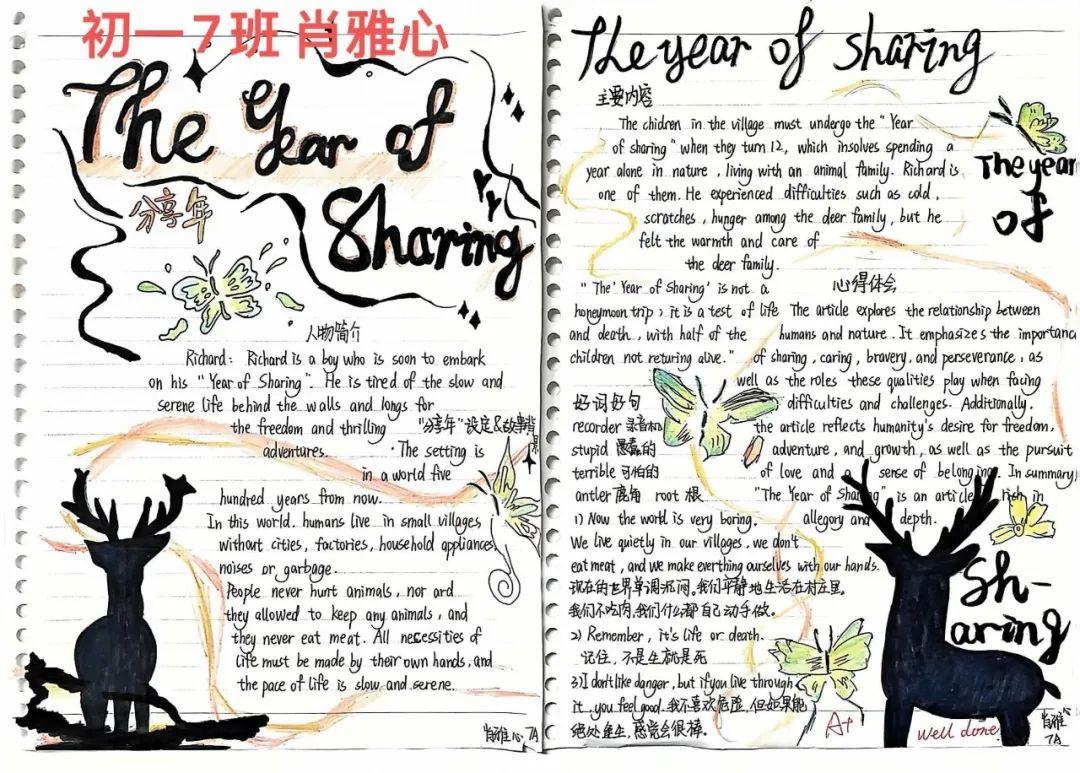 初一7班 肖雅心
The Year of
Sharing
分享年
人物简介
Richard: Richard is a boy who is soon to embark
on his "Year of Sharing". He is tired of the slow and
serene life behind the walls and longs for
the freedom and thrilling
adventures.
"分享年"设定&故事背景
· The setting is
in a world five
hundred years from now.
In this world, humans live in small villages
without cities, factories, household appliances,
noises or garbage.
People never hurt animals, nor ard
they allowed to keep any animals, and
they never eat meat. All necessities of
life must be made by their own hands, and
the pace of life is slow and serene.
肖雅心 7A
The year of sharing
主要内容
The chidren in the village must undergo the "Year
of sharing" when they turn 12, which involves spending a
year alone in nature, living with an animal family. Richard is
one of them. He experienced difficulties such as cold,
scratches, hunger among the deer family, but he
felt the warmth and care of
the deer family.
"The 'Year of Sharing' is not a
honeymoon trip; it is a test of life
and death, with half of the
children not returing alive."
心得体会
The article explores the relationship between
humans and nature. It emphasizes the importanca
of sharing, caring, bravery, and perseverance, as
well as the roles these qualities play when facing
difficulties and challenges. Additionally,
the article reflects humanity's desire for freedom,
adventure, and growth, as well as the pursuit
of love and a sense of belonging. In summary,
"The Year of Sharing" is an article rich in
allegory and depth.
好词好句
recorder 录音机
stupid 愚蠢的
terrible 可怕的
antler 鹿角 root 根
1) Now the world is very boring.
We live quietly in our villages, we don't
eat meat, and we make everthing ourselves with our hands.
现在的世界单调沉闷。我们平静地生活在村庄里。
我们不吃肉,我们什么都自己动手做。
2) Remember, it's life or death.
记住,不是生就是死
3) I don't like danger, but if you live through
it, you feel good. 我不喜欢危险,但如果能
绝处逢生,感觉会很棒。
The year
of
Sh-
aring
A+
well done
肖雅心
7A